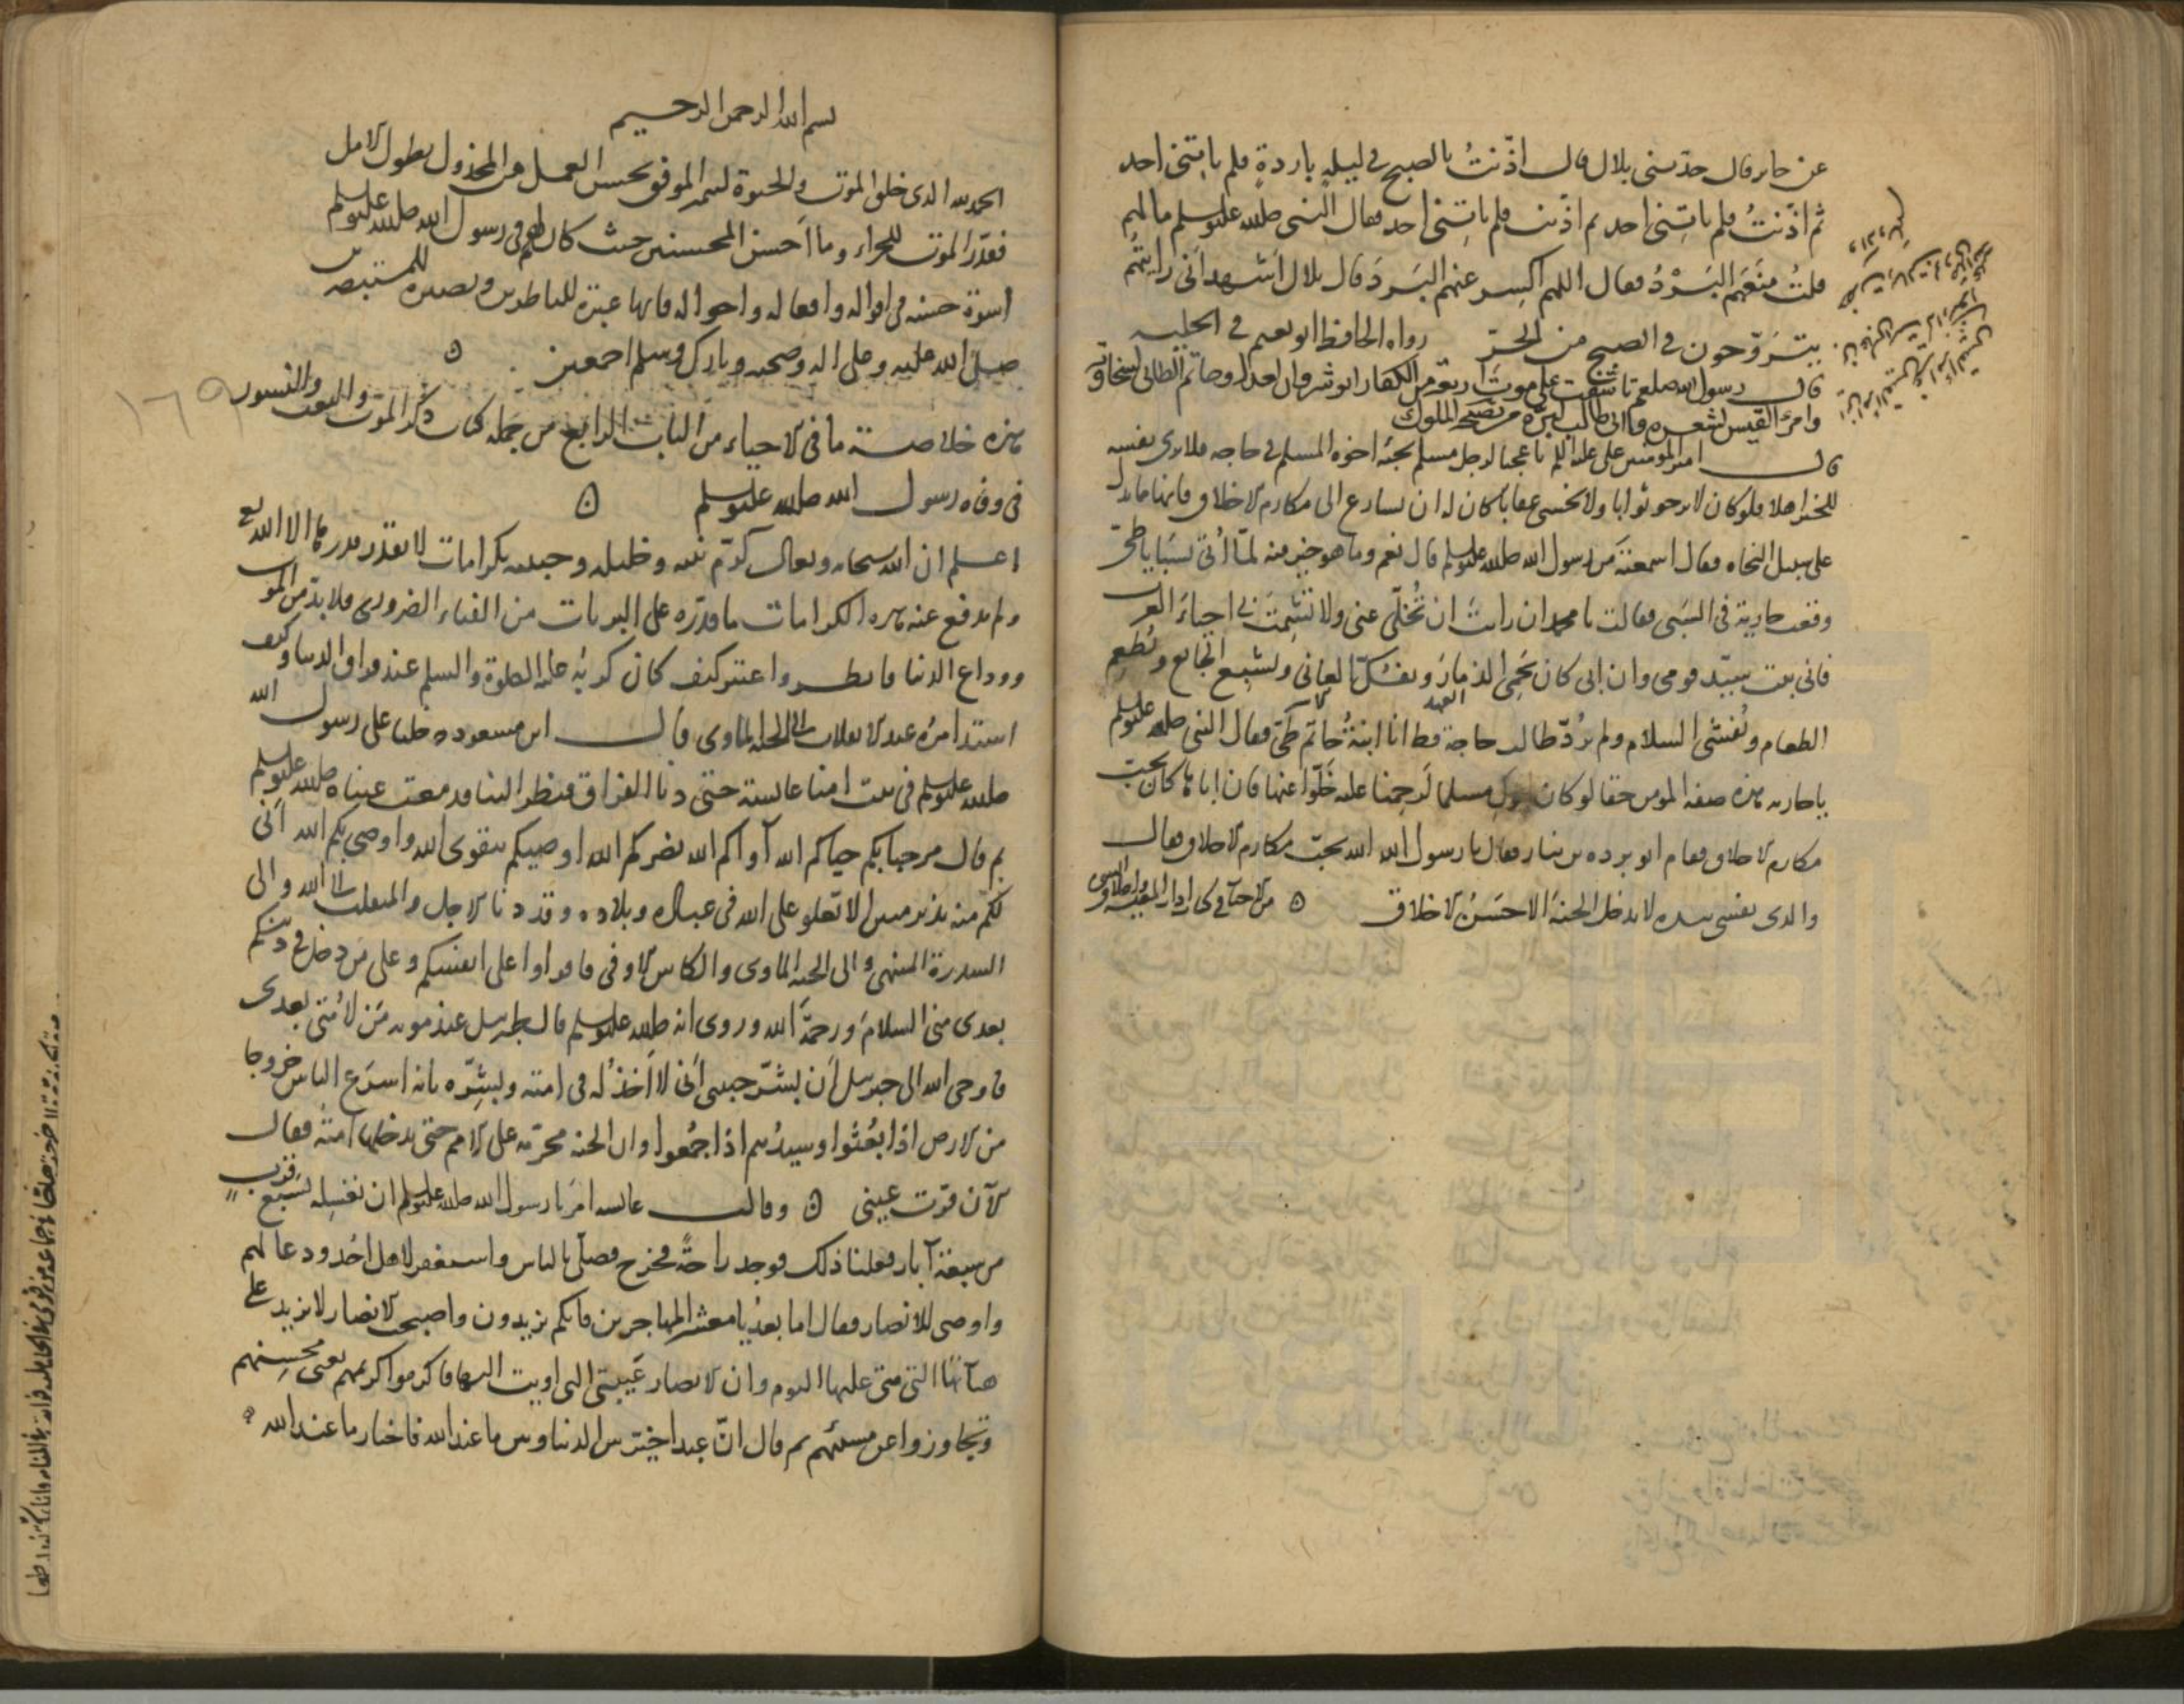 عن جابر قال حدثنى بلال قال اذّنتُ بالصبح فى ليلةٍ باردةٍ فلم ياتِنى احد
ثم اذّنتُ فلم ياتِنى احد ثم اذّنت فلم ياتِنى احد فقال النبى صلى الله عليه وسلم ما لهم
قلتُ منَعَهم البَرْدُ فقال اللهم اكسِر عنهم البَردَ قال بلال اشهد انى رايتُهم
يتَرَوّحون فى الصبح من الحرّ رواه الحافظ ابو نعيم فى الحلية
قال رسول الله صلعم تاسّفت على موت اربعة من الكفار انوشروان لعدله وحاتم الطائى لسخاوته
وامرَء القيس لشعره وابى طالب لبرّه
قال امير المؤمنين على عليه السلم يا عجبا لرجل مسلم يجئه اخوه المسلم فى حاجة فلا يرى نفسه
للخير اهلا فلو كان لا يرجو ثوابا ولا يخشى عقابا كان له ان يسارع الى مكارم الاخلاق فانها مما يدل
على سبيل النجاة فقال اسمعتَه من رسول الله صلى الله عليه وسلم قال نعم وما هو خير منه لمّا اُتى بسَبايا طىّ
وقعت جارية فى السَبى فقالت يا محمد ان رايتَ ان تُخلّى عنى ولا تُشمِت بى احياءَ العرب
فانى بنت سيّد قومى وان ابى كان يَحمى الذمارَ ويفكّ العانى ويشبع الجايع ويُطعم
الطعام ويُفشى السلام ولم يرُدّ طالب حاجة قط انا ابنةُ حاتم طىّ فقال النبى صلى الله عليه وسلم
يا جارية هذه صفة المومن حقا لو كان ابوكِ مسلما لترحمنا عليه خَلّوا عنها فان اباها كان يحبّ
مكارم الاخلاق فقام ابو بردة بن نيار فقال يا رسول الله الله يحبّ مكارم الاخلاق فقال
والذى نفسى بيده لا يدخل الجنة الا حَسَنُ الاخلاق
بسم الله الرحمن الرحيم
الحمد لله الذى خلق الموت والحيوة ليميز الموفق بحسن العمل من المخذول بطول الامل
فقدّر الموت للجزاء وما احسن المحسنين حيث كان لهم فى رسول الله صلى الله عليه وسلم
اسوة حسنة فى اقواله وافعاله واحواله فانها عبرة للناظرين وبصيرة للمستبصرين
صلى الله عليه وعلى اله وصحبه وبارك وسلم اجمعين
١٦٩
هذه خلاصة ما فى الاحياء من الباب الرابع من جملة كتاب ذكر الموت والبعث والنشور
فى وفاة رسول الله صلى الله عليه وسلم
اعلم ان الله سبحانه وتعالى كرّم نبيه وخليله وحبيبه بكرامات لا يقدر قدرها الا الله تع
ولم يدفع عنه هذه الكرامات ما قدّره على البريات من الفناء الضرورى فلا بدّ من الموت
ووداع الدنيا فانظروا واعتبر كيف كان كربُه عليه الصلوة والسلم عند فراق الدنيا وكيف
اشتد امرُه عند الانقلاب الى الجنة الماوى قال ابن مسعود دخلنا على رسول الله
صلى الله عليه وسلم فى بيت امنا عايشة حتى دنا الفراق فنظر الينا فدمعت عيناه صلى الله عليه وسلم
ثم قال مرحبا بكم حياكم الله آواكم الله نصركم الله اوصيكم بتقوى الله واوصى بكم الله انى
لكم منه نذير مبين الا تعلو على الله فى عباده وبلاده وقد دنا الاجل والمنقلب الى الله والى
السدرة المنتهى والى الجنة الماوى والكاس الاوفى فاقراوا على انفسكم وعلى من دخل فى دينكم
بعدى منى السلامَ ورحمةَ الله وروى انه صلى الله عليه وسلم قال لجبريل عند موته مَن لاُمتى بعدى
فاوحى الله الى جبريل ان بشّر حبيبى انى لا اَخذُله فى امته وبشِّره بانه اسرَع الناس خروجا
من الارض اذا بُعثوا وسيدُهم اذا جُمعوا وان الجنة محرّمة على الامم حتى يدخلها امته فقال
الآن قرّت عينى وقالت عايشة امرَنا رسول الله صلى الله عليه وسلم ان نغسِله بسَبع قِرَب
من سبعة آبار ففعلنا ذلك فوجد راحةً فخرج فصلّى بالناس واستغفر لاهل اُحُد ودعا لهم
واوصى للانصار فقال اما بعدُ يا معشر المهاجرين فانكم يزيدون واصبحت الانصار لا يزيد على
هيآتها التى هى عليها اليوم وان الانصار عَيبتى التى اويت اليها فاكرموا كريمهم يعنى محسنهم
وتجاوزوا عن مسيئهم ثم قال انّ عبدا خُيّر بين الدنيا وبين ما عند الله فاختار ما عند الله